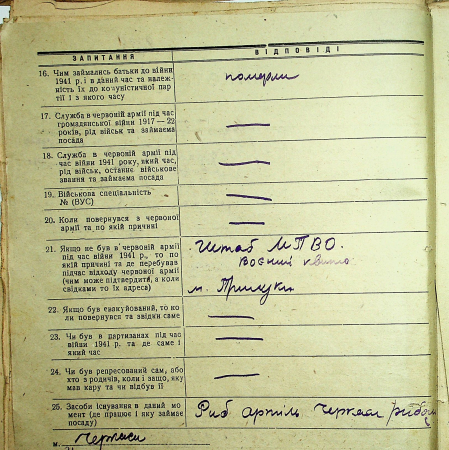 ЗАПИТАННЯ ВІДПОВІДІ
16. Чим займались батьки до війни
1941 р. і в даний час та належ-
ність їх до комуністичної пар-
тії і з якого часу
померли
17. Служба в червоній армії під час
громадянської війни 1917—22
років, рід військ та займаєма
посада
—
18. Служба в червоній армії під
час війни 1941 року, який час,
рід військ, останнє військове
звання та займаєма посада
—
19. Військова спеціальність
№ (ВУС)
—
20. Коли повернувся з червоної
армії та по якій причині
—
21. Якщо не був в червоній армії
під час війни 1941 р., то по
якій причині та де перебував
під час відходу червоної армії
(чим може підтвердити, а коли
свідками то їх адреса)
Штаб МПВО.
м. Прилуки
22. Якщо був евакуйований, то ко-
ли повернувся та звідки саме
—
23. Чи був в партизанах під час
війни 1941 р. та де саме і
який час
—
24. Чи був репресований сам, або
хто з родичів, коли і защо, яку
мав кару та чи відбув її
—
25. Засоби існування в даний мо-
мент (де працює і яку займає
посаду)
Риб артіль Черкаси
м. Черкаси